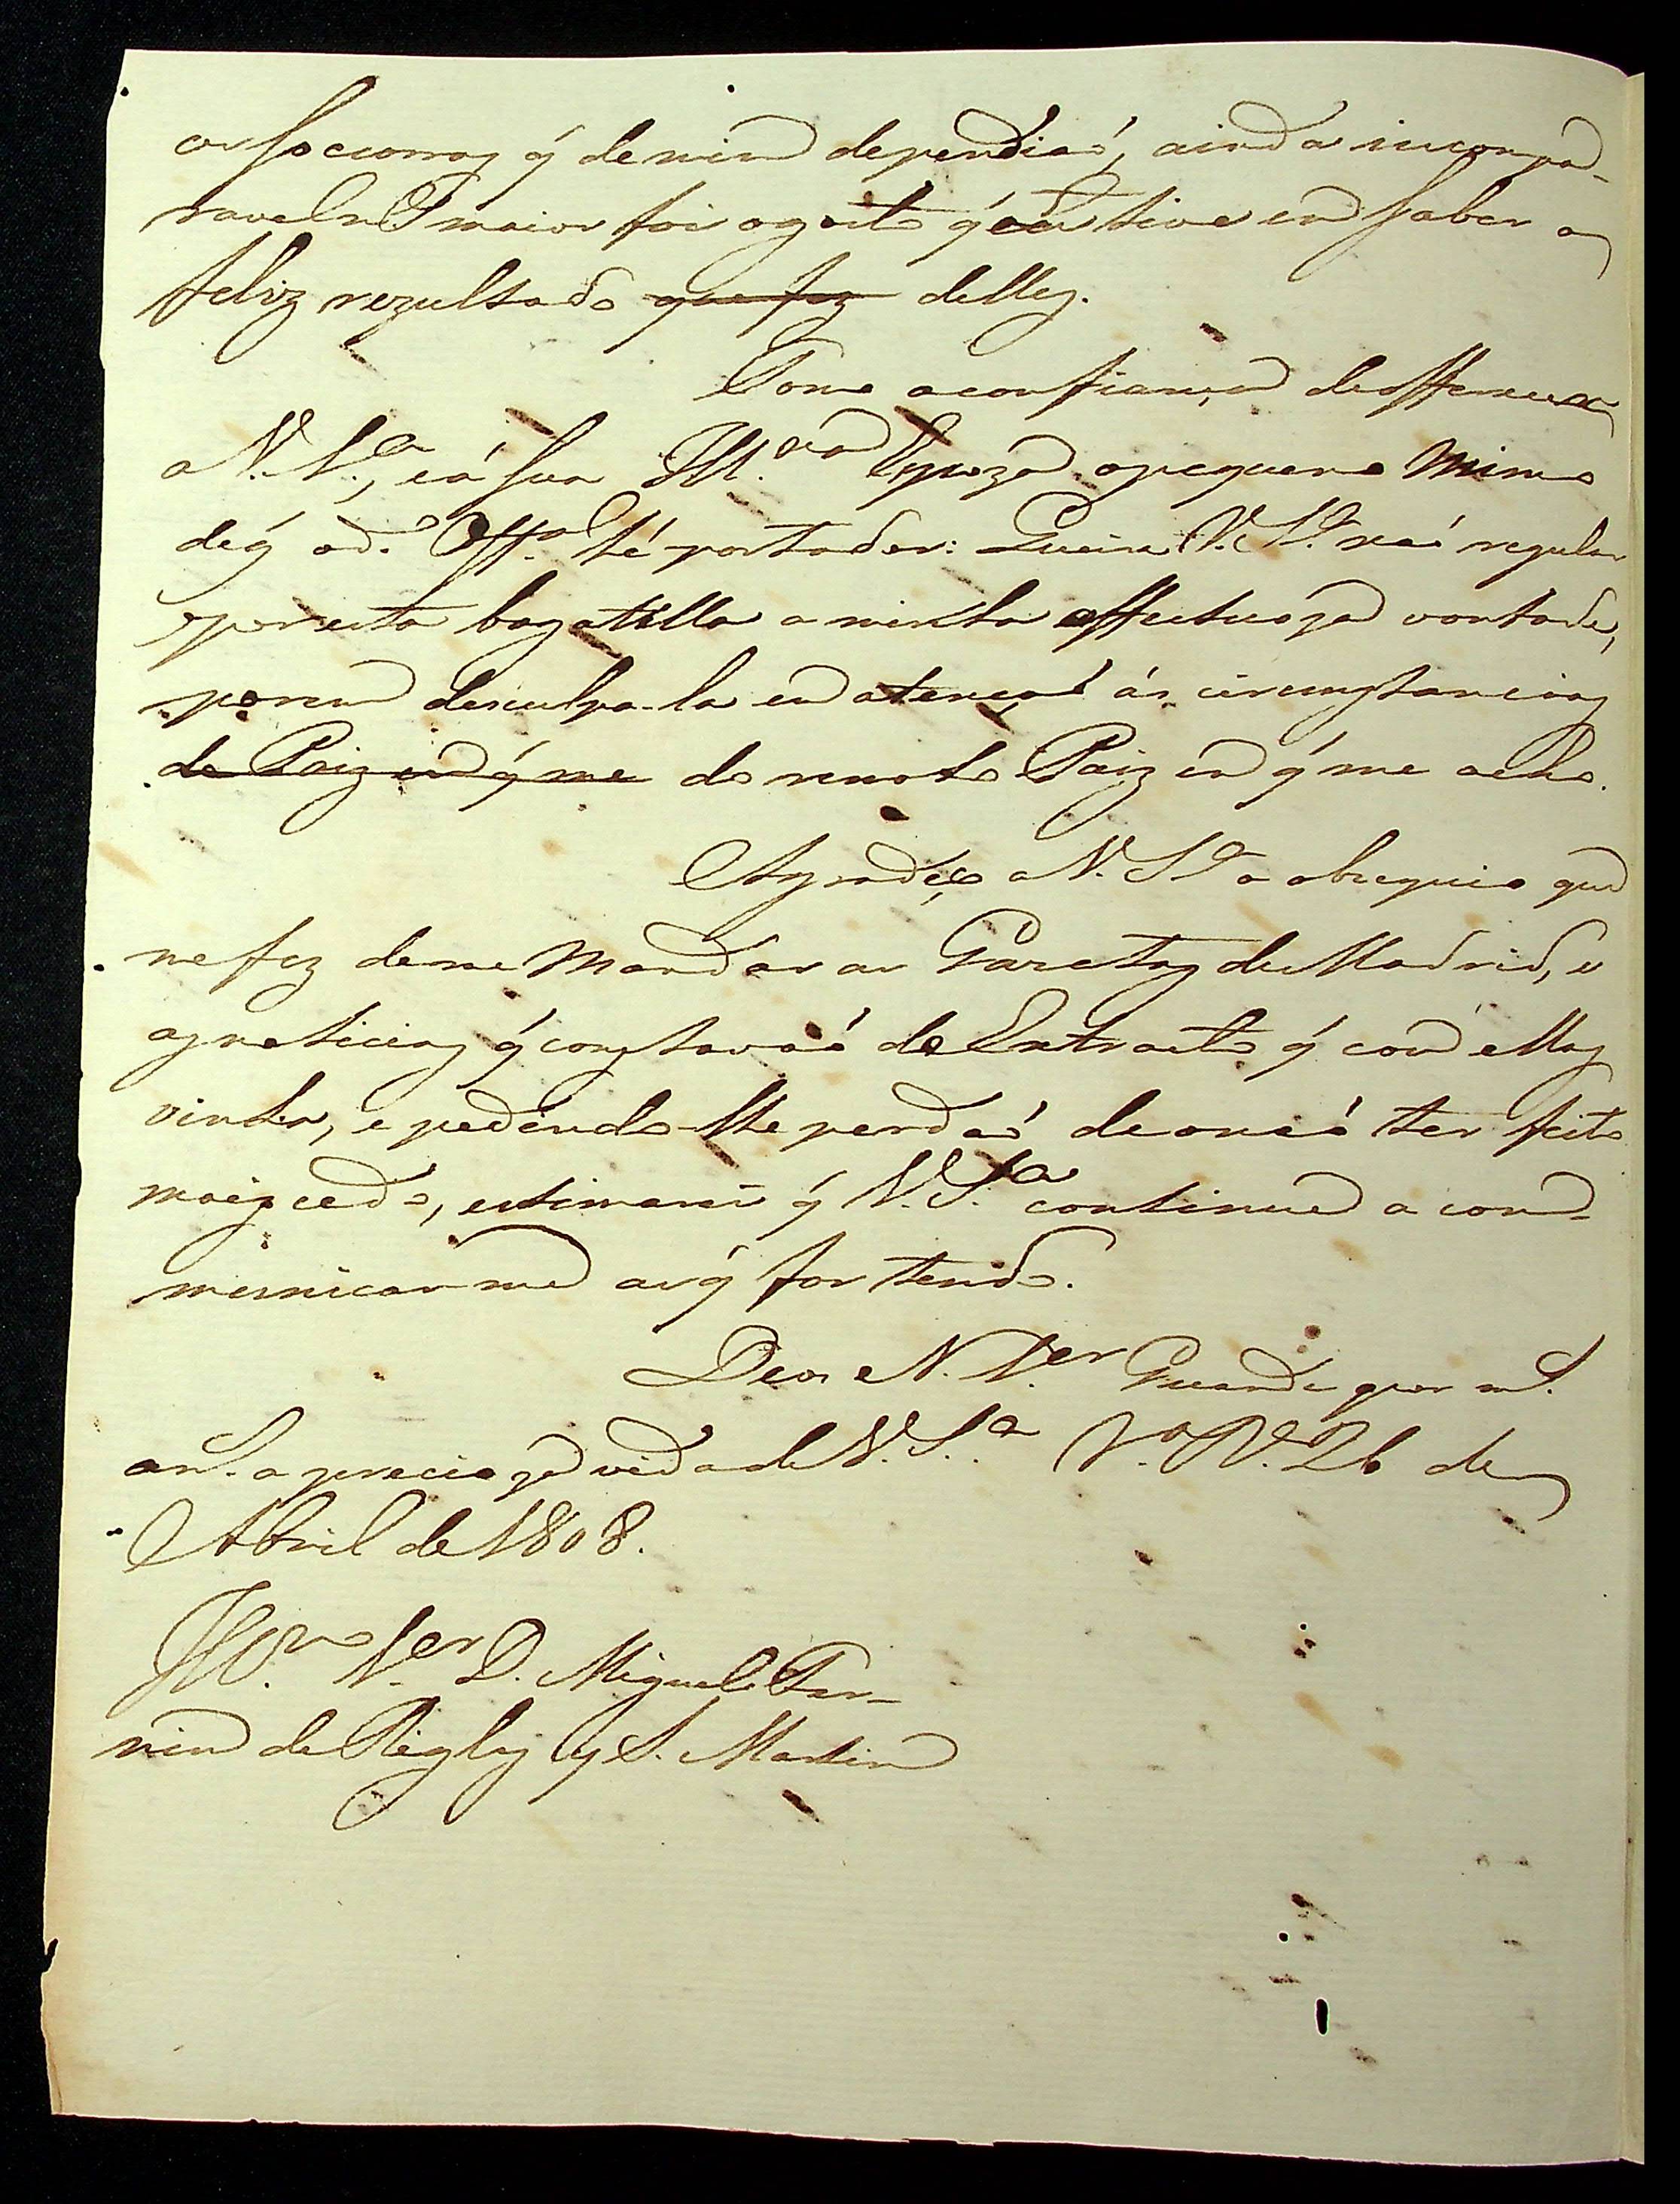 os soccorros q̃ de mim dependiaõ, ainda incompa-
ravelm.te maior foi o gosto q̃ eu tive em saber o
feliz rezultado que fez delles.
Tomo a confiança de offerecer
a V. S.a, e á sua Ill.ma Espoza o pequeno mimo
de q̃ o d.o Off.al hé portador: Queira V. S.a naõ regular
por esta bagatella a minha affectuoza vontade,
porem desculpa-la em atençaõ ás circunstancias
do Paiz em q̃ me do remoto Paiz em q̃ me acho.
Agradeço a V. S.a o obzequio que
me fez de me mandar as Gazetas de Madrid, e
as noticias q̃ constavaõ do Extracto q̃ com ellas
vinha, e pedindo-lhe perdaõ de o naõ ter feito
mais cedo, estimarei q̃ V. S.a continue a com-
municar-me as q̃ for tendo.
Deos N. S.er Guarde por m.s
an.s a precioza vida de V. S.a V.a R.l 26 de
Abril de 1808.
Ill.mo S.er D. Miguel Fer-
min de Riglos y S. Martin